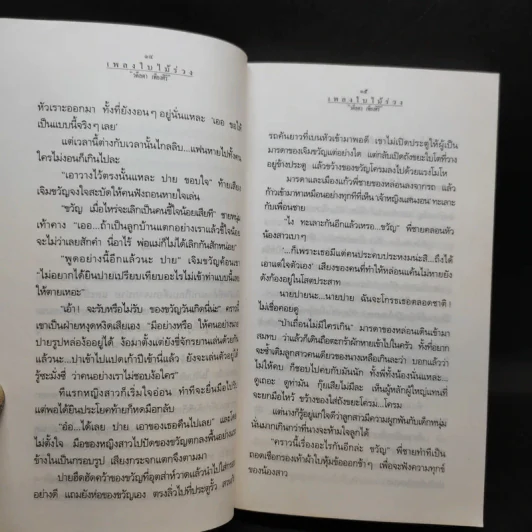 ๑๔
เพลงใบไม้ร่วง
หัวเราะออกมา ทั้งที่ยังงอนๆ อยู่นั่นแหละ "เออ ขอให้
เป็นแบบนี้จริงๆ เลย"
แต่เวลานี้ต่างกับเวลานั้นไกลลิบ...แฟนหายไปทั้งคน
ใครไม่งอนก็เกินไปละ
"เอาวางไว้ตรงนั้นแหละ ปาย ขอบใจ" ท้ายเสียง
เจิมขวัญจงใจสะบัดให้คนฟังถอนหายใจเล่น
"ขวัญ เมื่อไหร่จะเลิกเป็นคนขี้ใจน้อยเสียที" ชายหนุ่ม
เท้าคาง "เออ...ถ้าเป็นลูกบ้านแตกอย่างเราแล้วขี้ใจน้อย
จะไม่ว่าเลยสักคำ นี่อาไร้ พ่อแม่ก็ไม่ได้เลิกกันสักหน่อย"
"พูดอย่างนี้อีกแล้วนะ ปาย" เจิมขวัญค้อนคม
"ไม่อยากได้ยินปายเปรียบเทียบอะไรไม่เข้าท่าแบบนี้เลย
ให้ตายเหอะ"
"เอ้า! จะรับหรือไม่รับ ของขวัญวันเกิดนี่น่ะ" คราวนี้
เขาเป็นฝ่ายหงุดหงิดเสียเอง "มีอย่างหรือ ให้คนอย่างนาย
ปายรูปหล่อง้ออยู่ได้ ง้อมาตั้งแต่ยังขี่จักรยานเล่นด้วยกัน
แล้วนะ...ปาเข้าไปแปดเก้าปีเข้านี่แล้ว ยังจะเล่นตัวอยู่ได้
รู้ซะมั่งซี่ ว่าคนอย่างเราไม่ชอบง้อใคร"
ทีแรกหญิงสาวก็เริ่มใจอ่อน ทำทีจะยื่นมือไป
แต่พอได้ยินประโยคท้ายก็หดมือกลับ
"อ๋อ...ได้เลย ปาย เอาของเธอคืนไปเลย"
ไม่ตั้งใจ มือของหญิงสาวไปปัดของขวัญตกลงพื้นอย่าง
ข้างในเป็นกรอบรูป เสียงกระจกแตกจึงตามมา
ปายฮึดฮัดคว้าของขวัญที่อุตส่าห์วาดแล้วนำไปใส่กรอบ
อย่างดี แถมยังห่อของขวัญเอง ตรงลิ่วไปที่ประตูรั้ว
๑๕
เพลงใบไม้ร่วง
รถคันยาวที่เบนหัวเข้ามาพอดี เขาไม่เปิดประตูให้ผู้เป็น
มารดาของเจิมขวัญแต่อย่างใด แต่กลับเปิดถังขยะใบโตที่วาง
อยู่ข้างประตู แล้วขว้างของขวัญโครมลงไปด้วยแรงโมโห
มารดาและเมืองแก้วพี่ชายของหล่อนลงจากรถ แล้ว
ก้าวเข้ามาหาเหมือนอย่างทุกทีที่เห็น 'เจ้าหญิงแสนงอน' ทะเลาะ
กับเพื่อนชาย
"ไง ทะเลาะกันอีกแล้วเหรอ...ขวัญ" พี่ชายคลอนหัว
น้องสาวเบาๆ
"...ก็เพราะเธอมีแต่คนประคบประหงมน่ะสิ...ถึงได้
เอาแต่ใจตัวเอง" เสียงของคนที่ทำให้หล่อนแค้นไม่หายยัง
ดังก้องอยู่ในโสตประสาท
นายปายนะ...นายปาย ฉันจะโกรธเธอตลอดชาติ!
ไม่เชื่อคอยดู
"ป่าเถื่อนไม่มีใครเกิน" มารดาของหล่อนเดินเข้ามา
สมทบ แล้วก็เดินถือตะกร้าผักหายเข้าไปในครัว ทั้งที่อยาก
จะซ้ำเติมลูกสาวคนเดียวของนางเหลือเกินล่ะว่า บอกแล้วว่า
ไม่ให้คบ ก็ชอบไปคบกับมันนัก ทั้งพี่ทั้งน้องนั่นแหละ...
ดูเถอะ ดูท่ามัน กุ๊ยเสียไม่มีละ เห็นผู้หลักผู้ใหญ่แทนที่
จะยกมือไหว้ ขว้างของใส่ถังขยะโครม...โครม
แต่นางก็รู้อยู่แก่ใจว่าลูกสาวมีความผูกพันกับเด็กหนุ่ม
นั่นมากเกินกว่าที่นางจะห้ามใจลูกได้
"คราวนี้เรื่องอะไรกันอีกล่ะ ขวัญ" พี่ชายทำทีเป็น
ถอดเชือกรองเท้าผ้าใบหุ้มข้อออกช้าๆ เพื่อจะฟังความทุกข์
ของน้องสาว